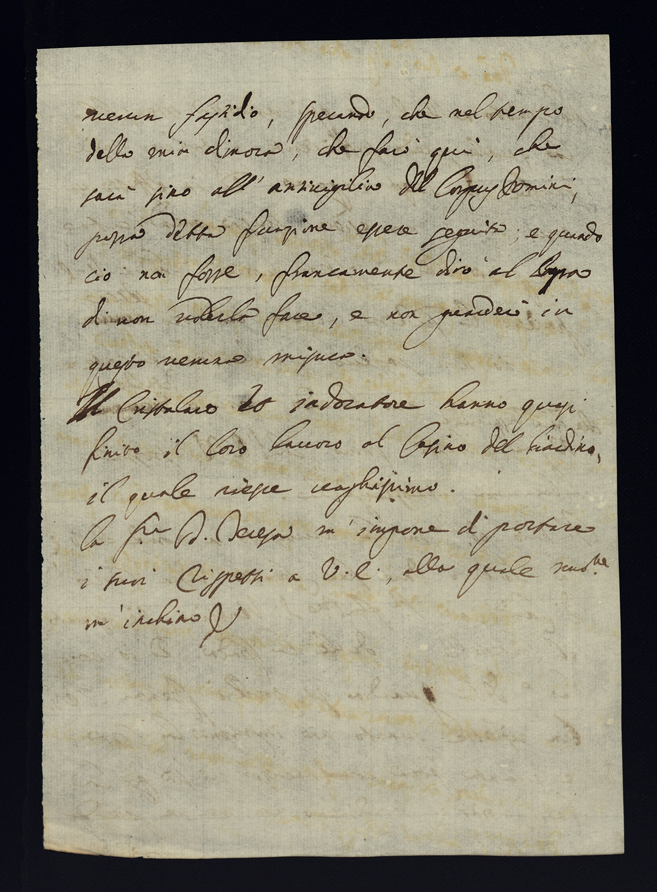 nessun fastidio, sperando, che nel tempo
della mia dimora, che farò quì, che
sarà sino all'antivigilia del Corpus Domini,
possa detta funzione essere seguita, e quando
ciò non fosse, francamente dirò al
di non volerla fare, e non prenderò in
questo nessuna misura.
Il Cristalaro Indoratore hanno quasi
finito il loro lavoro al Casino del Giardino,
il quale riesce vaghissimo.
la Sra D. Teresa m'impone di portare
i suoi rispetti a V. E., alla quale
m'inchino